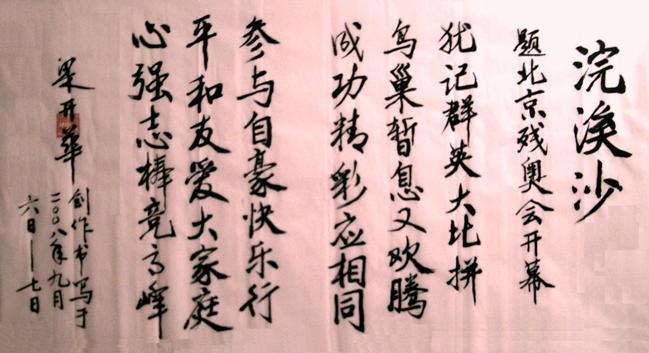 浣溪沙
题北京残奥会开幕
犹记群英大比拼
鸟巢暂息又欢腾
成功精彩应相同
参与自豪快乐行
平和友爱大家庭
心强志棒竞高峰
梁开华
创作书写于
二〇〇八年九月
六日－七日